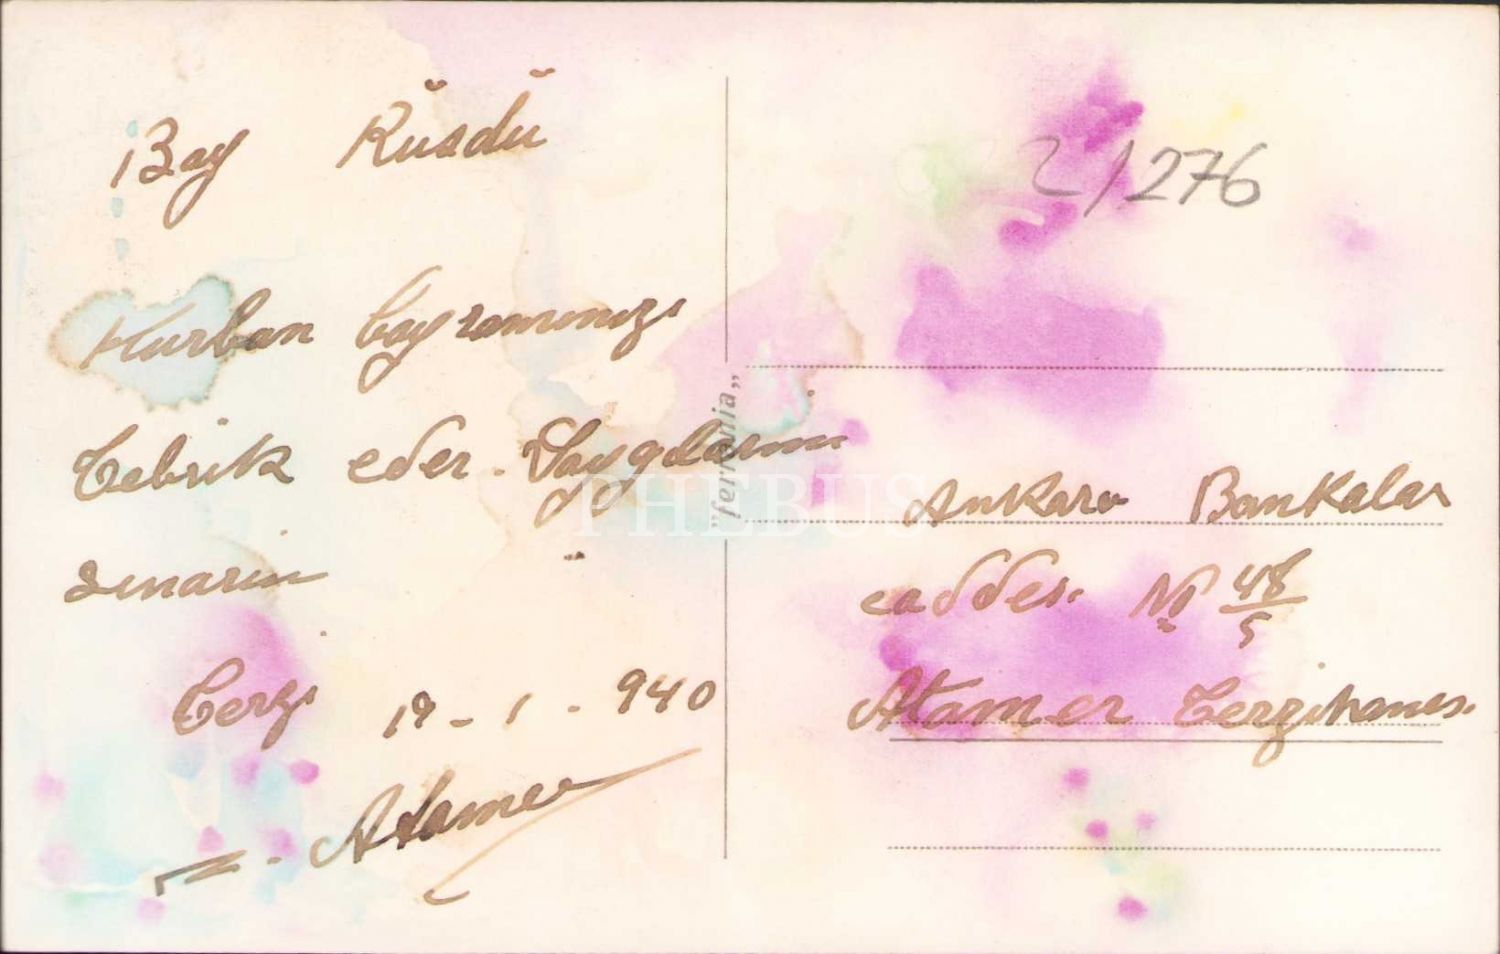 Bay Rüsdü
Kurban bayramınızı
Tebrik eder. Saygılarımı
sunarım
Terzi 19-1-940
Atamer
"ferrania"
2/276
Ankara Bankalar
caddesi No 48/5
Atamer Terzihanesi
PHEBUS